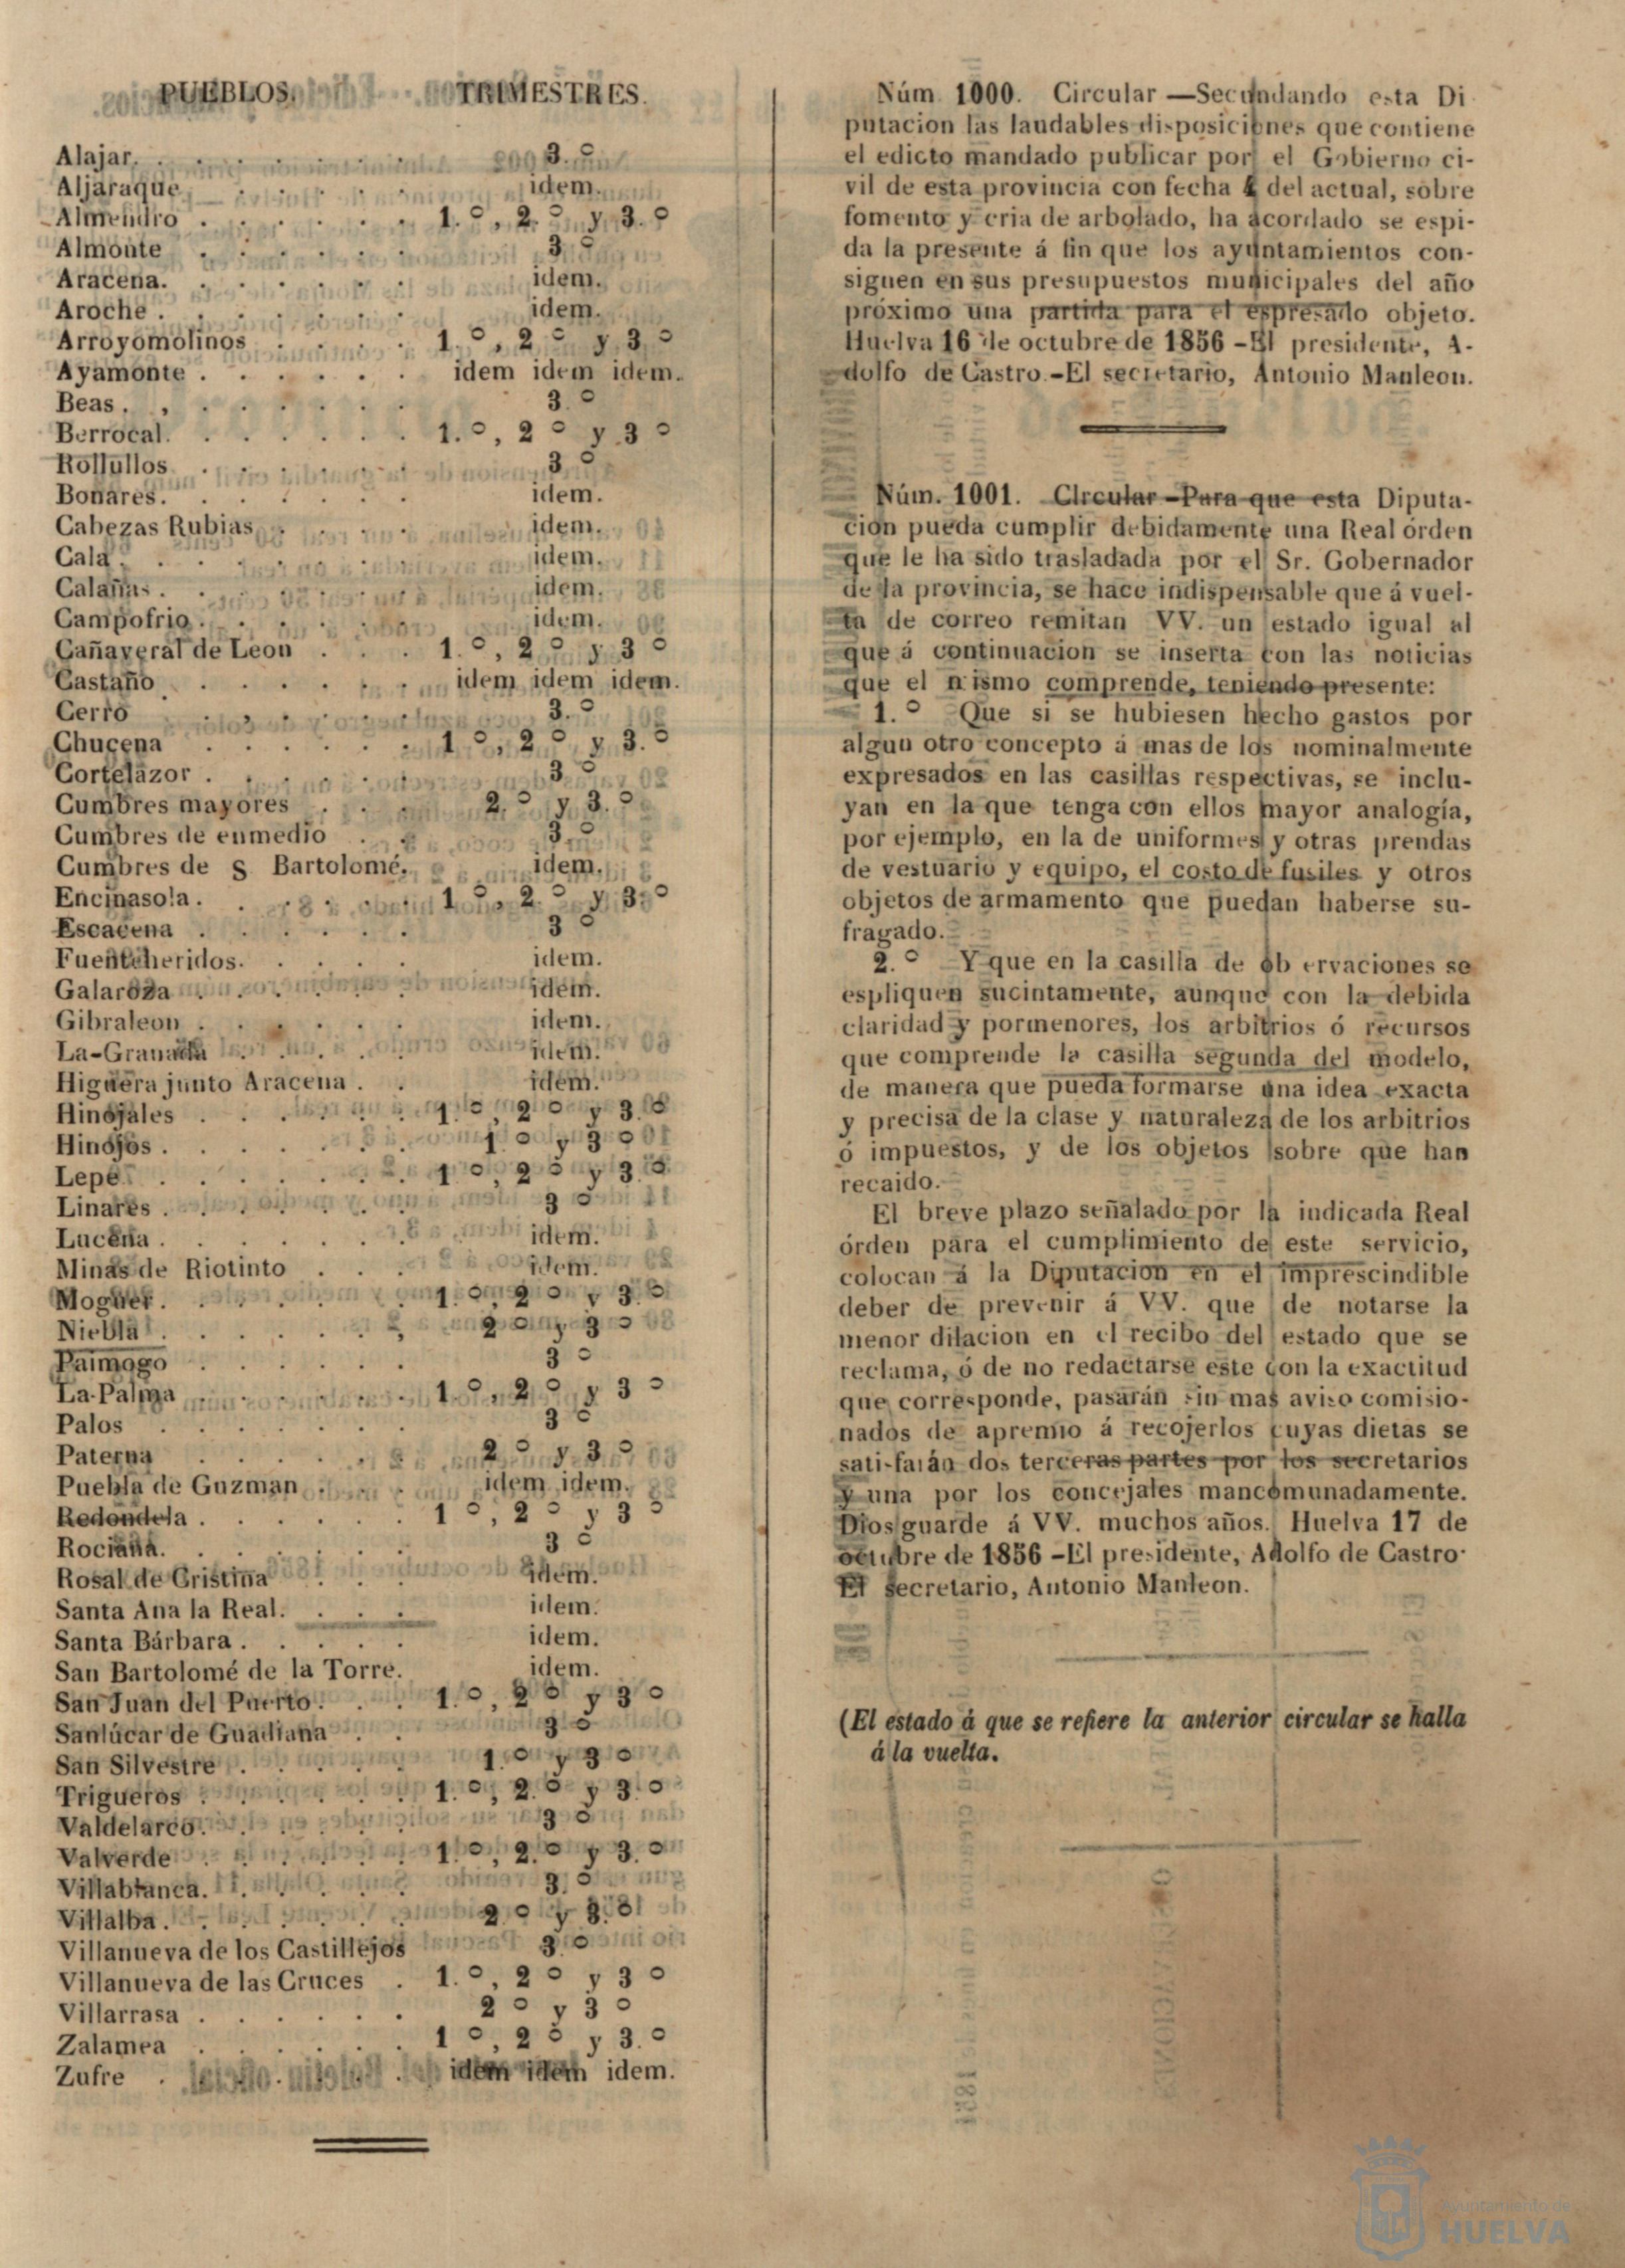 PUEBLOS. TRIMESTRES.
Alajar. . . . . . . . 3.º
Aljaraque. . . . . . idem.
Almendro . . . . . . . 1.º, 2.º y 3.º
Almonte . . . . . . 3.º
Aracena. . . . . . . idem.
Aroche . . . . . . . idem.
Arroyomolinos . . . . 1.º, 2.º y 3.º
Ayamonte . . . . . . . idem idem idem.
Beas . , . . . . . . 3.º
Berrocal. . . . . . . . 1.º, 2º y 3º
Rollullos . . . . . . . 3º
Bonares. . . . . . . idem.
Cabezas Rubias . . . . idem.
Cala . . . . . . . . idem.
Calañas . . . . . . . idem.
Campofrio . . . . . . idem.
Cañaveral de Leon . . . 1.º, 2º y 3º
Castaño . . . . . . . idem idem idem.
Cerro . , . . . . . 3.º
Chucena . . . . . . . 1º, 2º y 3.º
Cortelazor . . . . . . 3º
Cumbres mayores . . . 2.º y 3.º
Cumbres de enmedio . . 3.º
Cumbres de S Bartolomé. idem.
Encinasola . . . . . . . 1º, 2.º y 3.º
Escacena . . . . . . 3º
Fuenteheridos. . . . . idem.
Galaroza . . . . . . idem.
Gibraleon . . . . . . idem.
La-Granada . . . . . idem.
Higuera junto Aracena . . idem.
Hinojales . . . . . . . 1.º, 2º y 3.º
Hinojos . . . . . . . . 1.º y 3º
Lepe . . . . . . . . 1º, 2º y 3.º
Linares . . . . . . . 3º
Lucena . . . . . . . idem.
Minas de Riotinto . . . idem.
Moguer. . . . . . . . 1.º, 2º y 3.º
Niebla . . . . . . , 2º y 3º
Paimogo . . . . . . 3º
La-Palma . . . . . . . 1.º, 2º y 3º
Palos . . . . . . . 3º
Paterna . . . . . . 2.º y 3.º
Puebla de Guzman . . . idem idem.
Redondela . . . . . . . 1º, 2º y 3º
Rociana. . . . . . . 3º
Rosal de Cristina . . . idem.
Santa Ana la Real. . . . idem.
Santa Bárbara . . . . . idem.
San Bartolomé de la Torre. idem.
San Juan del Puerto. . . 1.º, 2º y 3º
Sanlúcar de Guadiana . . 3º
San Silvestre . . . . . 1.º y 3º
Trigueros . . . . . . . 1.º, 2.º y 3.º
Valdelarco. . . . . . 3º
Valverde . . . . . . . 1.º, 2.º y 3.º
Villablanca. . . . . . 3.º
Villalba . . . . . . . 2.º y 3.º
Villanueva de los Castillejos 3.º
Villanueva de las Cruces . 1.º, 2º y 3º
Villarrasa . . . . . . 2º y 3º
Zalamea . . . . . . . 1º, 2º y 3.º
Zufre . . . . . . . . idem idem idem.
Núm. 1000. Circular —Secundando esta Di-
putacion las laudables disposiciones que contiene
el edicto mandado publicar por el Gobierno ci-
vil de esta provincia con fecha 4 del actual, sobre
fomento y cria de arbolado, ha acordado se espi-
da la presente á fin que los ayuntamientos con-
siguen en sus presupuestos municipales del año
próximo una partida para el espresado objeto.
Huelva 16 de octubre de 1856 -El presidente, A-
dolfo de Castro.-El secretario, Antonio Manleon.
Núm. 1001. Circular -Para que esta Diputa-
cion pueda cumplir debidamente una Real órden
que le ha sido trasladada por el Sr. Gobernador
de la provincia, se hace indispensable que á vuel-
ta de correo remitan VV. un estado igual al
que á continuacion se inserta con las noticias
que el mismo comprende, teniendo presente:
1.º Que si se hubiesen hecho gastos por
algun otro concepto á mas de los nominalmente
expresados en las casillas respectivas, se inclu-
yan en la que tenga con ellos mayor analogía,
por ejemplo, en la de uniformes y otras prendas
de vestuario y equipo, el costo de fusiles y otros
objetos de armamento que puedan haberse su-
fragado.
2.º Y que en la casilla de ob ervaciones se
espliquen sucintamente, aunque con la debida
claridad y pormenores, los arbitrios ó recursos
que comprende la casilla segunda del modelo,
de manera que pueda formarse una idea exacta
y precisa de la clase y naturaleza de los arbitrios
ó impuestos, y de los objetos sobre que han
recaido.
El breve plazo señalado por la indicada Real
órden para el cumplimiento de este servicio,
colocan á la Diputacion en el imprescindible
deber de prevenir á VV. que de notarse la
menor dilacion en el recibo del estado que se
reclama, ó de no redactarse este con la exactitud
que corresponde, pasarán sin mas aviso comisio-
nados de apremio á recojerlos cuyas dietas se
satisfarán dos terceras partes por los secretarios
y una por los concejales mancomunadamente.
Dios guarde á VV. muchos años. Huelva 17 de
octubre de 1856 -El presidente, Adolfo de Castro-
El secretario, Antonio Manleon.
(El estado á que se refiere la anterior circular se halla
á la vuelta.
Ayuntamiento de
HUELVA